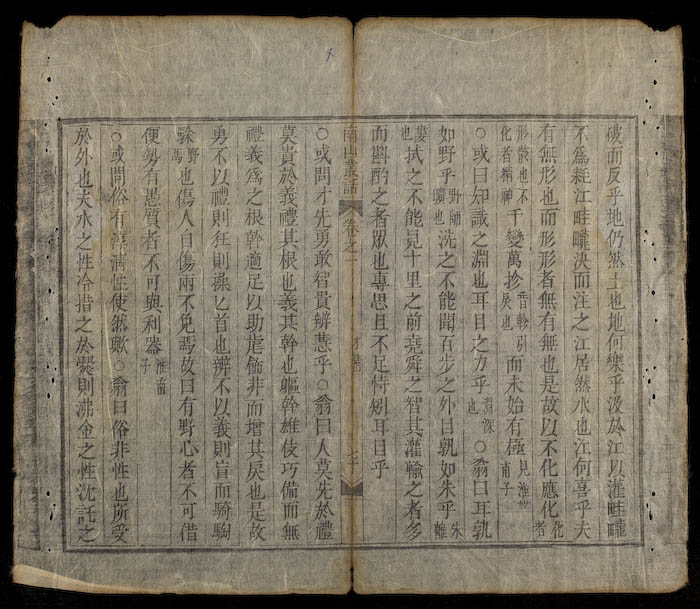 破而反乎地仍然土也地何樂乎汲於江以灌畦疇
不爲耗江畦疇決而注之江居然水也江何喜乎夫
有無形也而形形者無有無也是故以不化應化化者
形骸也不化者精神千變萬抮音軫引戾也而未始有極見淮南子
○或曰知識之淵也耳目之力乎淵深也○翁曰耳孰
如野乎野師曠也洗之不能聞百步之外目孰如朱乎朱離
婁也拭之不能見十里之前堯舜之智其灌輸之者多
而斟酌之者眾也專思且不足恃矧耳目乎
南山叢話 卷之一
○或問才先勇敢智貴辨慧乎○翁曰人莫先於禮
莫貴於義禮其根也義其幹也軀幹雄伎巧備而無
禮義爲之根幹適足以助虐飾非而增其戾也是故
勇不以禮則狂則操匕首也辨不以義則盲而騎駒
騄野馬也傷人自傷兩不免焉故曰有野心者不可借
便勢有愚質者不可與利器淮南子
○或問俗有淳漓性使然歟○翁曰俗非性也所受
於外也夫水之性冷措之於爨則沸金之性沈託之